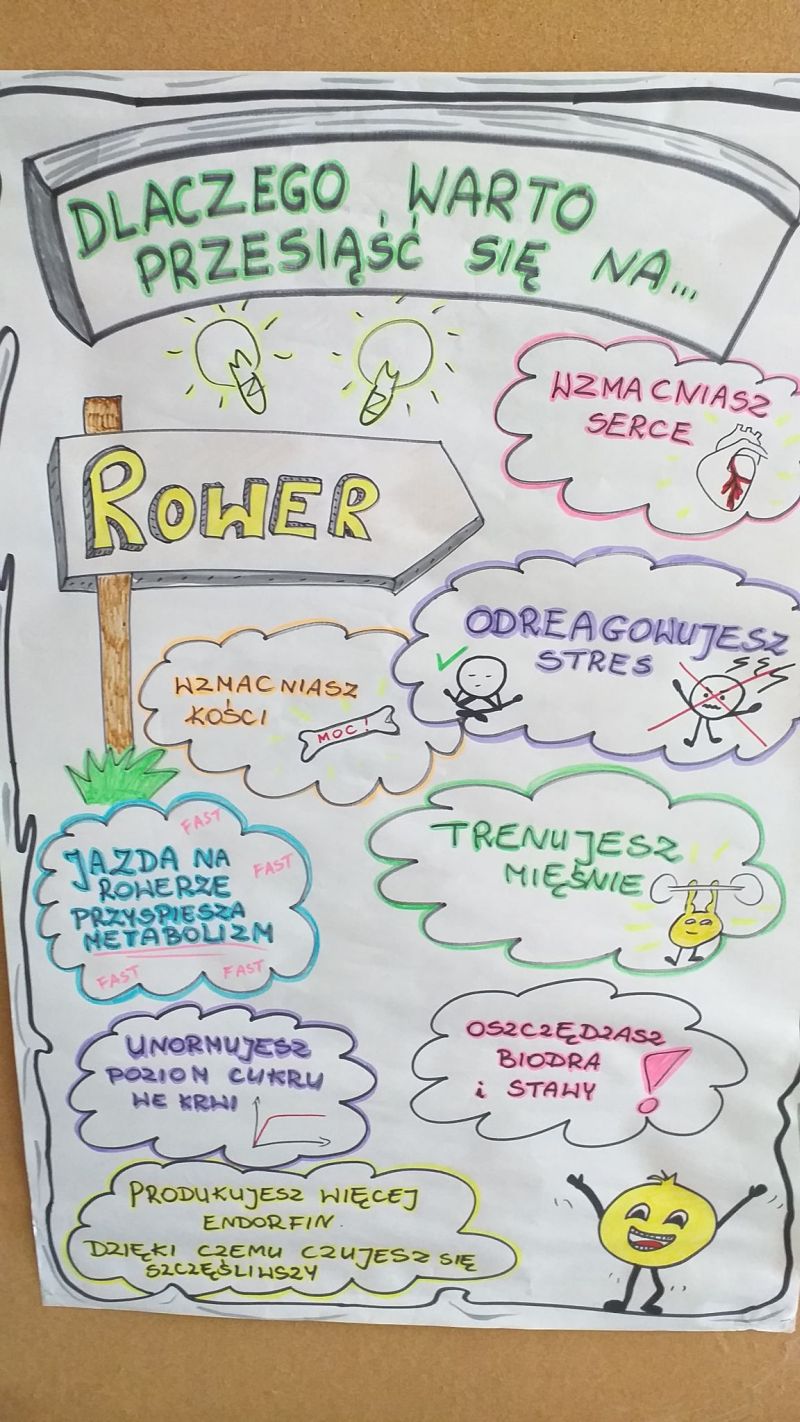 DLACZEGO WARTO
PRZESIĄŚĆ SIĘ NA...
ROWER
WZMACNIASZ
SERCE
ODREAGOWUJESZ
STRES
WZMACNIASZ
KOŚCI
MOC!
TRENUJESZ
MIĘŚNIE
FAST
JAZDA NA
FAST
ROWERZE
PRZYSPIESZA
METABOLIZM
FAST
FAST
UNORMUJESZ
POZIOM CUKRU
WE KRWI
OSZCZĘDZASZ
BIODRA
i STAWY
PRODUKUJESZ WIĘCEJ
ENDORFIN.
DZIĘKI CZEMU CZUJESZ SIĘ
SZCZĘŚLIWSZY